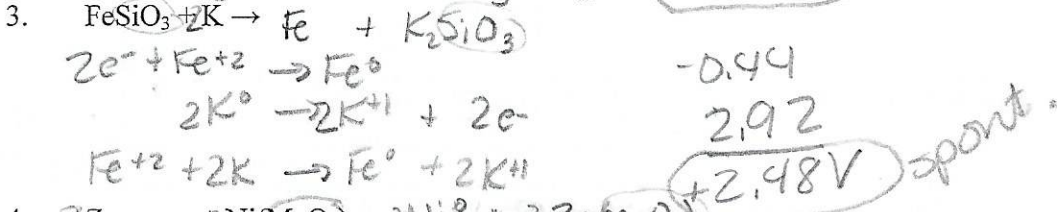 3. FeSiO₃ + 2K → Fe + K₂SiO₃
2e⁻ + Fe⁺² → Fe⁰ -0.44
2K⁰ → 2K⁺¹ + 2e- 2.92
Fe⁺² + 2K → Fe⁰ + 2K⁺¹ +2.48V spont.